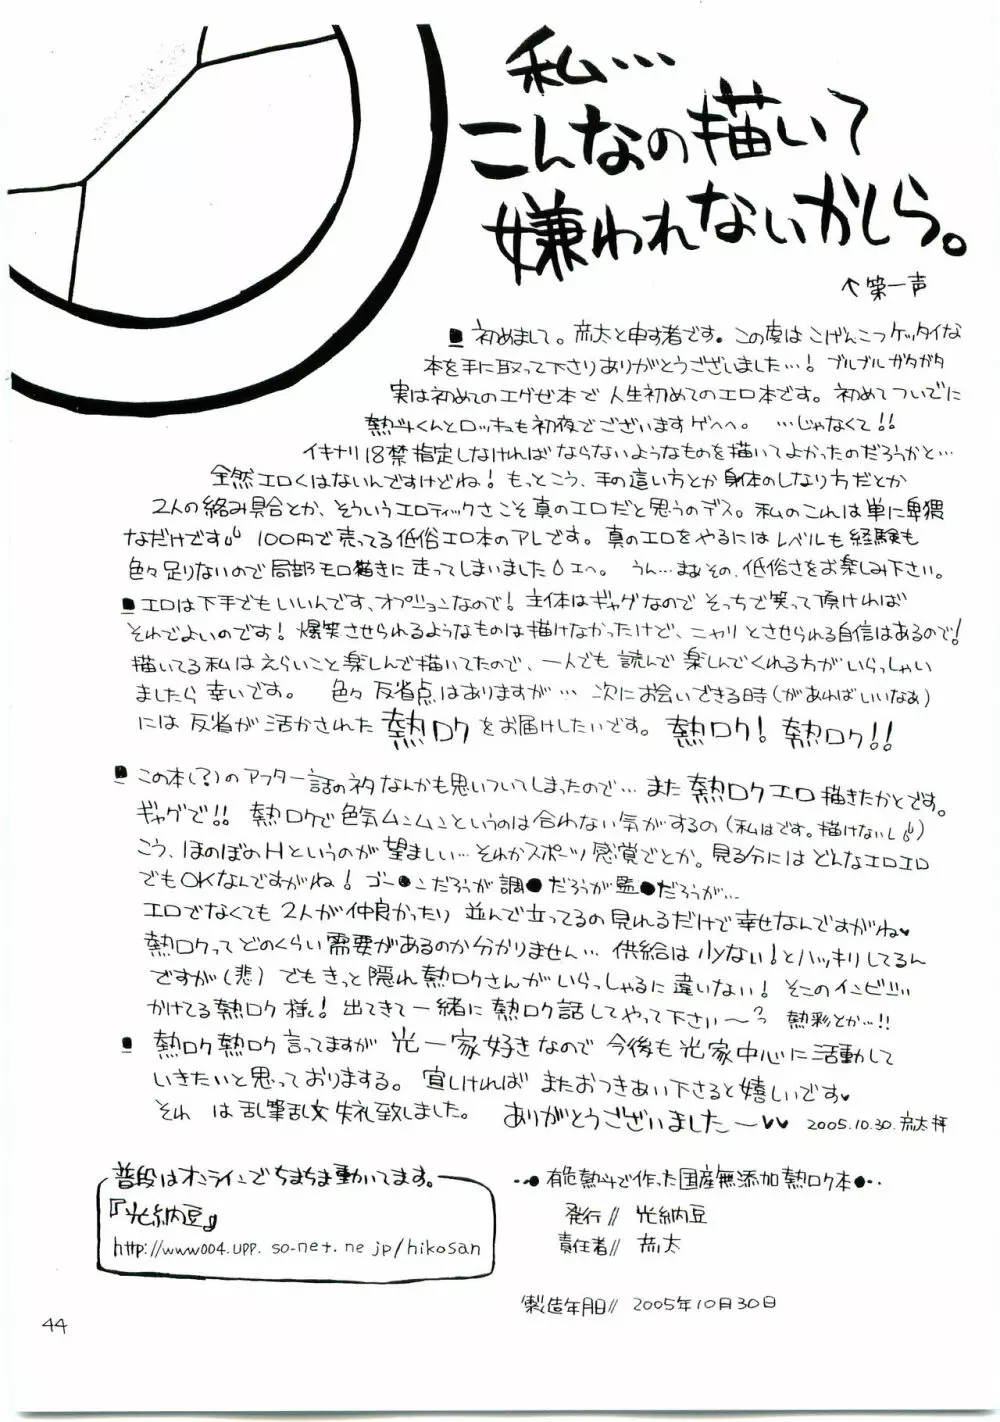 私…
こんなの描いて
嫌われないかしら。
↑第一声
■ 初めまして。彦太と申す者です。この度はこげんこつケッタイな
本を手に取って下さりありがとうございました…! ブルブルガタガタ
実は初めてのエグゼ本で人生初めてのエロ本です。初めてついでに
熱斗くんとロッキュも初夜でございますゲヘヘ。 …じゃなくて!!
イキナリ18禁指定しなければならないようなものを描いてよかったのだろうかと…
全然エロくはないんですけどね! もっとこう、手の這い方とか身体のしなり方だとか
2人の絡み具合とか、そういうエロティックさこそ真のエロだと思うのデス。私のこれは単に卑猥
なだけです 100円で売ってる低俗エロ本のアレです。真のエロをやるにはレベルも経験も
色々足りないので局部モロ描きに走ってしまいました うん…まぁその、低俗さをお楽しみ下さい。
■ エロは下手でもいいんです、オプションなので! 主体はギャグなのでそっちで笑って頂ければ
それでよいのです! 爆笑させられるようなものは描けなかったけど、ニヤリとさせられる自信はあるので!
描いてる私はえらいこと楽しんで描いてたので、一人でも読んで楽しんでくれる方がいらっしゃい
ましたら幸いです。 色々反省点はありますが… 次にお会いできる時(があればいいなぁ)
には反省が活かされた熱ロクをお届けしたいです。 熱ロク! 熱ロク!!
■ この本(?)のアフター話のネタなんかも思いついてしまったので… また熱ロクエロ描きたかとです。
ギャグで!! 熱ロクで色気ムンムンというのは合わない気がするの(私はです。描けないし)
こう、ほのぼのHというのが望ましい… それかスポーツ感覚でとか。見る分にはどんなエロエロ
でもOKなんですがね! ゴー●ンだろうが調●だろうが監●だろうが…
エロでなくても2人が仲良かったり並んで立ってるの見れるだけで幸せなんですがね♥
熱ロクってどのくらい需要があるのか分かりません… 供給は少ない!とハッキリしてるん
ですが(悲) でもきっと隠れ熱ロクさんがいらっしゃるに違いない! そこのインビジ
かけてる熱ロク様! 出てきて一緒に熱ロク話してやって下さい〜? 熱彩とか…!!
■ 熱ロク熱ロク言ってますが光一家好きなので今後も光家中心に活動して
いきたいと思っておりまする。宜しければまたおつきあい下さると嬉しいです♥
それでは乱筆乱文失礼致しました。 ありがとうございました〜♥♥ 2005.10.30.彦太拝
普段はオンラインでちまちま動いてます。
『光納豆』
http://www004.upp.so-net.ne.jp/hikosan
‥●有危熱斗で作った国産無添加熱ロク本●‥
発行// 光納豆
責任者// 彦太
製造年月日// 2005年10月30日
44